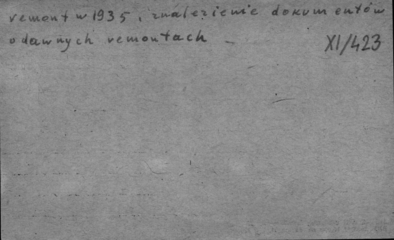 remont w 1935, znalezienie dokumentów
o dawnych remontach –
XI/423